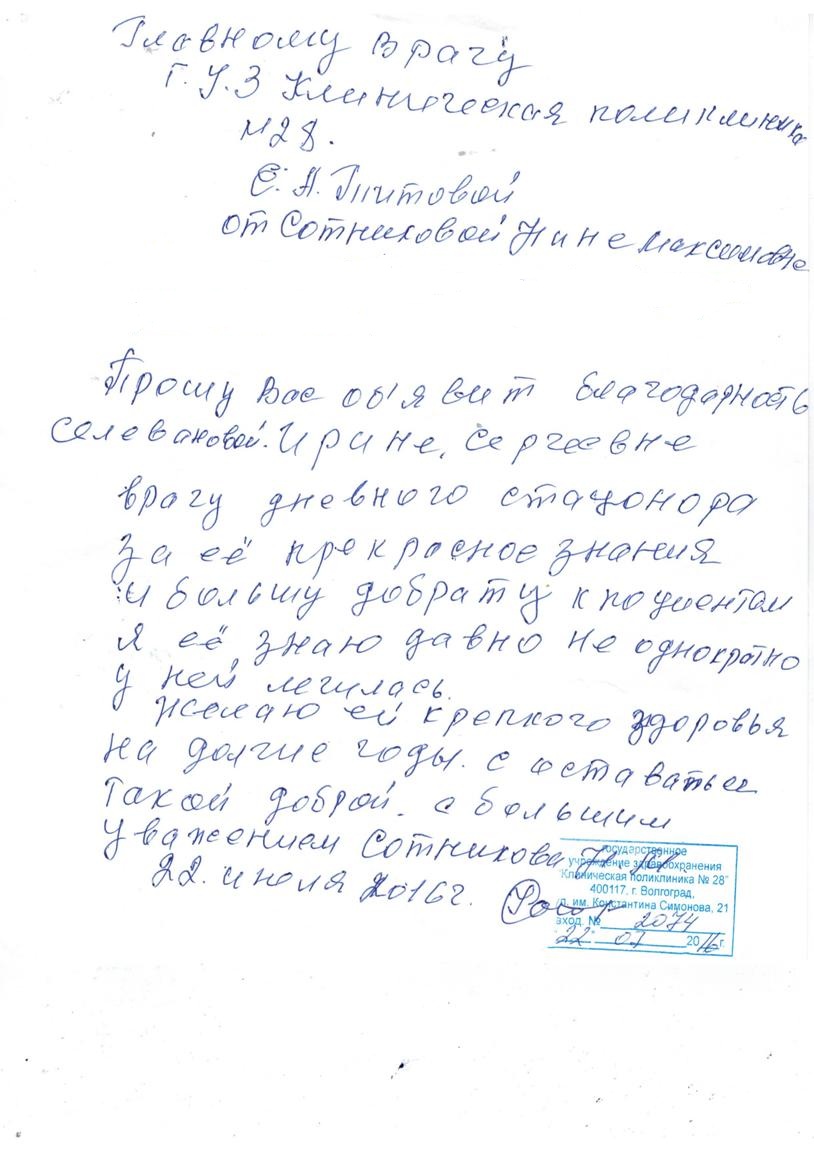 Главному врачу
Г.У.З Клиническая поликлиника
№28.
Е.А.Титовой
от Сотниковой Нине Максимовне
Прошу Вас объявит благодарность
Селевановой. Ирине, Сергеевне
врачу дневного стационора
за её прекрасное знания
и большу добрату к пациентам
я её знаю давно не однократно
у ней лечилась.
Желаю ей крепкого здоровья
на долгие годы. с оставаться
такой доброй. с большим
уважением Сотникова Н.М.
22. июля 2016г.
государственное
учреждение здравоохранения
"Клиническая поликлиника № 28"
400117. г. Волгоград,
ул. им. Константина Симонова, 21
вход. № 2074
"22" 07 2016 г.